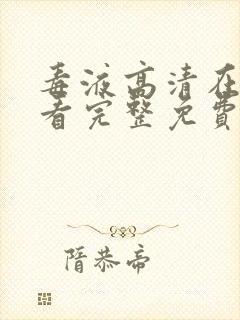 毒液高清在
看完整免费
隋恭帝